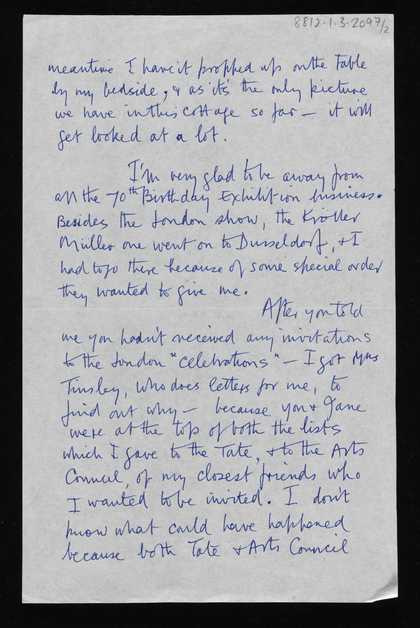 8812.1.3.2097/2
meantime I have it propped up on the table
by my bedside, & as it's the only picture
we have in this cottage so far — it will
get looked at a lot.
I'm very glad to be away from
all the 70th Birthday Exhibition business.
Besides the London show, the Kröller
Müller one went on to Dusseldorf, & I
had to go there because of some special order
they wanted to give me.
After you told
me you hadn't received any invitations
to the London "celebrations" — I got Mrs
Tinsley, who does letters for me, to
find out why — because you & Jane
were at the top of both the lists
which I gave to the Tate, & to the Arts
Council, of my closest friends who
I wanted to be invited. I don't
know what could have happened
because both Tate & Arts Council